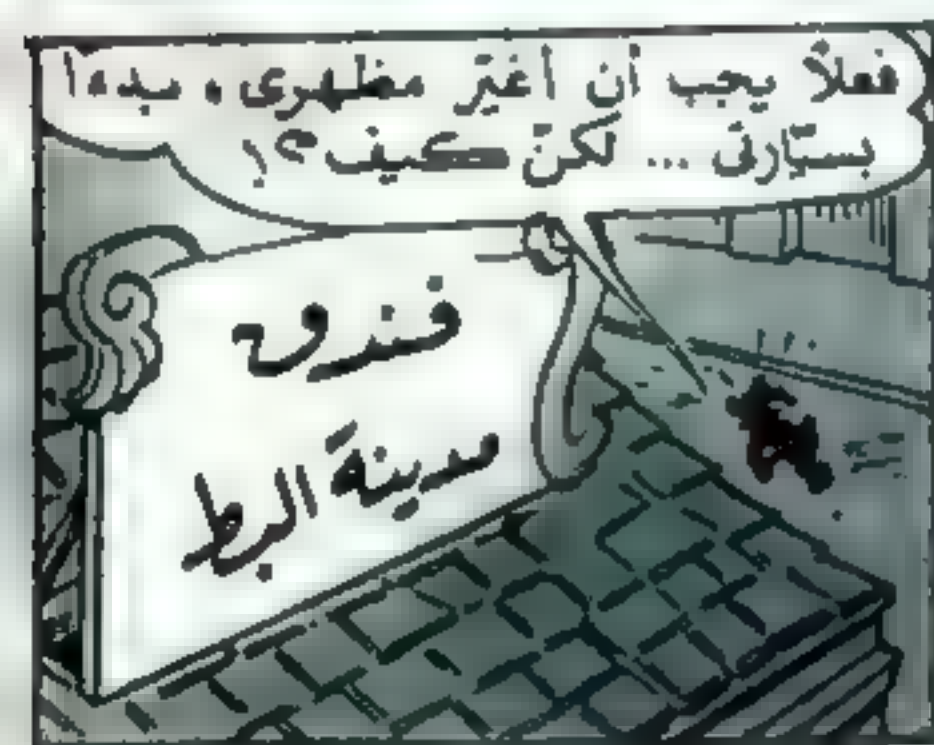 فعلاً يجب أن أغيّر مظهرى، بدءًا
بستارتى ... لكنّ كيف؟!
فندق
مدينة البط